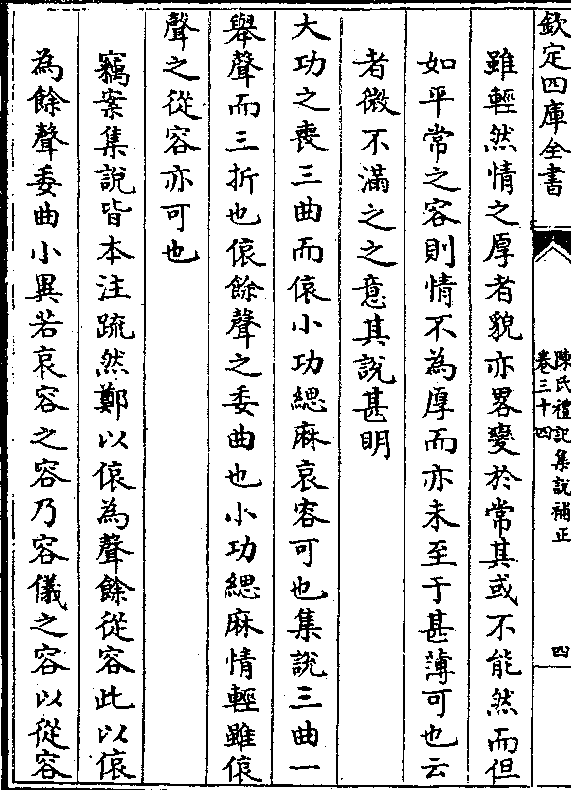 欽定四庫全書
陳氏禮記集說補正
卷三十四
四
雖輕然情之厚者貌亦畧變於常其或不能然而但
如平常之容則情不為厚而亦未至于甚薄可也云
者微不滿之之意其說甚明
大功之喪三曲而偯小功緦麻哀容可也集說三曲一
舉聲而三折也偯餘聲之委曲也小功緦麻情輕雖偯
聲之從容亦可也
竊案集說皆本注疏然鄭以偯為聲餘從容此以偯
為餘聲委曲小異若哀容之容乃容儀之容以從容